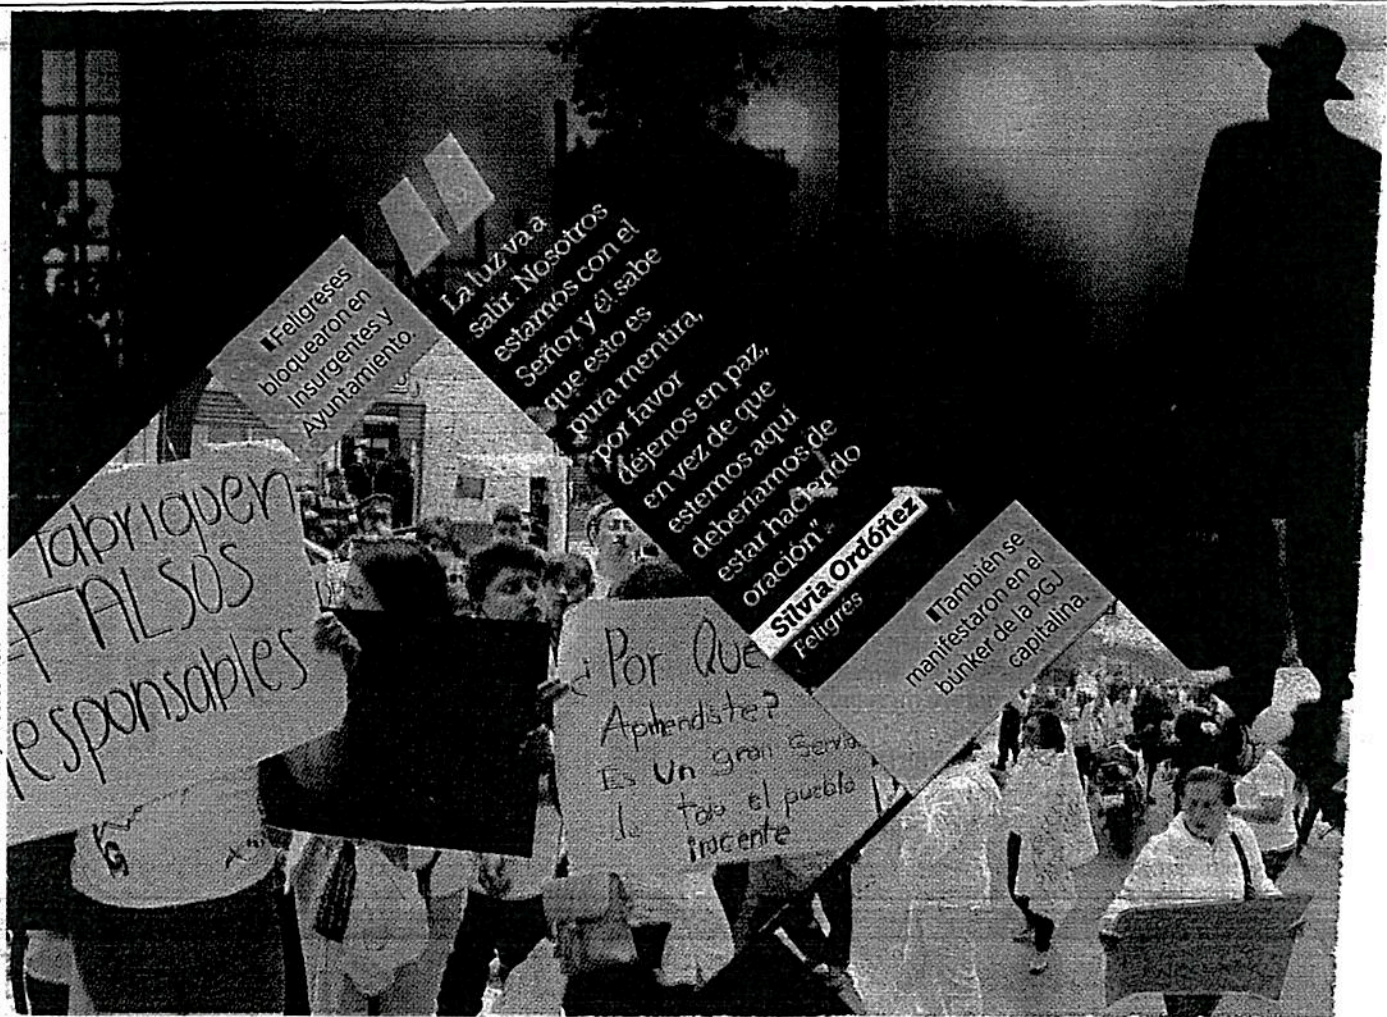 Feligreses
bloquearon en
Insurgentes y
Ayuntamiento.
La luz va a
salir. Nosotros
estamos con el
Señor, y él sabe
que esto es
pura mentira,
por favor
déjenos en paz,
en vez de que
estemos aquí
deberíamos de
estar haciendo
oración".
Silvia Ordóñez
Feligrés
También se
manifestaron en el
bunker de la PGJ
capitalina.
fabriquen
FALSOS
responsables
¿Por Que
Aprendiste?
Es Un gran
todo el pueblo
inocente